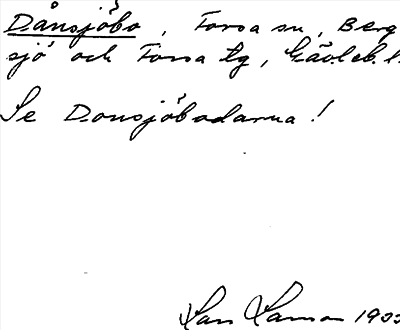 Dånsjöbo, Forsa sn, Berg
sjö och Forsa tg, Gävleb. l.
Se Donsjöbodarna!
Lars Larsson 193